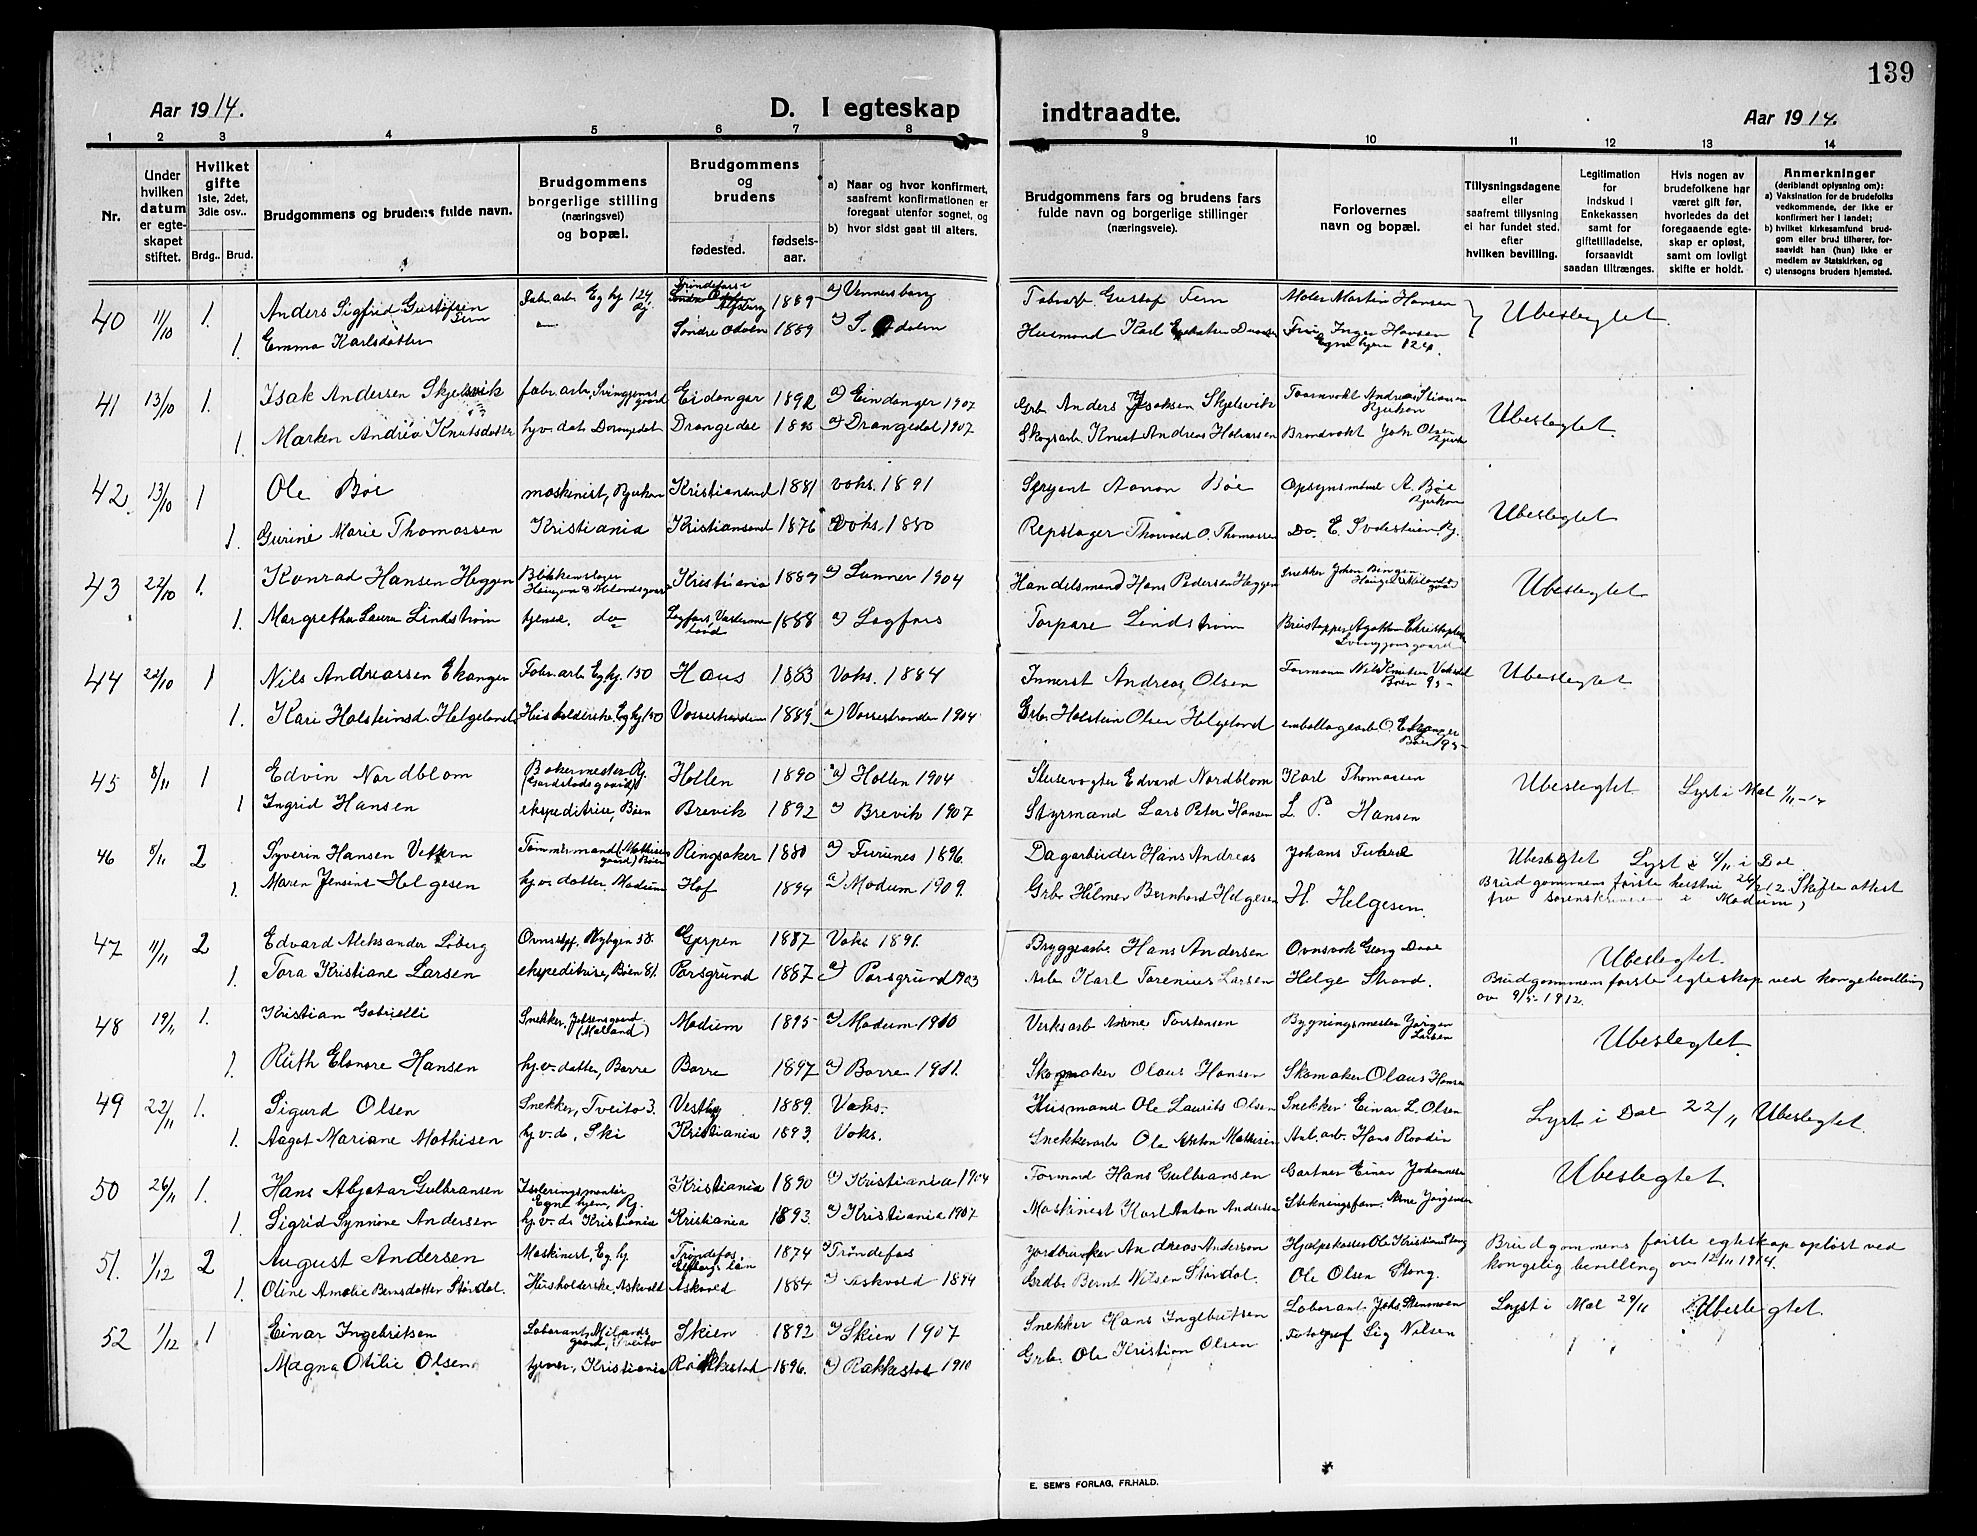 139
Aar 1914.
D. I egteskap
indtraadte.
Aar 1914.
1 2 3 4 5 6 7 8 9 10 11 12 13 14
Nr.
Under hvilken datum er egteskapet stiftet.
Hvilket gifte 1ste, 2det, 3die osv..
Brdg.. Brud.
Brudgommens og brudens fulde navn.
Brudgommens borgerlige stilling (næringsvei) og bopæl.
Brudgommens og brudens
fødested. fødselsaar.
a) Naar og hvor konfirmert, saafremt konfirmationen er foregaat utenfor sognet, og
b) hvor sidst gaat til alters.
Brudgommens fars og brudens fars fulde navn og borgerlige stillinger (næringsveie).
Forlovernes navn og bopæl.
Tillysningsdagene eller saafremt tillysning ei har fundet sted, efter hvilken bevilling.
Legitimation for indskud i Enkekassen samt for giftetilladelse, forsaavidt saadan tiltrænges.
Hvis nogen av brudefolkene har været gift før, hvorledes da det foregaaende egteskap er opløst, samt om lovligt skifte er holdt.
Anmerkninger (deriblandt oplysning om):
a) Vaksination for de brudefolks vedkommende, der ikke er konfirmert her i landet;
b) hvilket kirkesamfund brudgom eller brud tilhører, forsaavidt han (hun) ikke er medlem av Statskirken, og
c) utensogns bruders hjemsted.
40 11/10 1. Anders Sigfrid Gustafsen Fern Fabr. arb. Eg. hj. 124 Rj. 1889 a) Vennersborg Fabrarb. Gustaf Fern Maler Martin Hansen Ubeslegtet.
1. Emma Karlsdatter Søndre Odalen 1889 a) S. Odalen Husmand Karl Fru Inger Hansen Egne hjem 124.
41 13/10 1. Isak Andersen Skjelsvik fabr. arb. Svingensgaard Eidanger 1892 a) Eidanger 1907 Grb. Anders Isaksen Skjelsvik Taarnvokt Andreas Rjukan Ubeslegtet.
1. Marken Andréa Knutsdatter hjv. dat. Drangedal Drangedal 1895 a) Drangedal 1907 Skogsarb. Knut Andreas Halvorsen Brandvakt Joh. Olsen Rjukan
42. 13/10 1 Ole Bøe maskinist, Rjukan Kristiansund 1881 voks. 1891 Sergent Aanon Bøe Opsynsmand A. Bøe Rjukan Ubeslegtet
1. Gurine Marie Thomassen Kristiania Kristiansund 1876 Voks. 1880 Repslager Thorvald O. Thomassen Do. E. Rj.
43 22/10 1. Konrad Hansen Heggen Blikkenslager Kristiania 1889 a) Lunner 1904 Handelsmand Hans Pedersen Heggen Snekker Johan Bingen Ubeslegtet
1. Margrethe Laura Lindstrøm tjener. do 1888 a) Torpare Lindstrøm
44 22/10 1 Nils Andreassen Ekanger Fabr. arb. Eg. hj. 150 Haus 1883 Voks. 1884 Innerst Andreas Olsen Formann Nils Knutsen Bøen 95 Ubeslegtet.
1. Kari Holsteinsd. Helgeland Husholderske, Eg. hj. 150 Vossestranden 1889 a) Vossestranden 1904 Grb. Holstein Olsen Helgeland emballagearb. O. Ekanger Bøen 95
45 8/11 1 Edvin Nordblom Bakermester Rj. Hollen 1890 a) Hollen 1904 Slusevogter Edvard Nordblom Karl Thomassen Ubeslegtet. Lyst i Mæl 1/11-14
1 Ingrid Hansen ekspeditrise, Bøen Brevik 1892 a) Brevik 1907 Styrmand Lars Peter Hansen L. P. Hansen
46 8/11 2 Syverin Hansen Tømmermand Ringsaker 1880 a) Furunes 1896. Dagarbeider Hans Andreas Johans Ubeslegtet Lyst i 4/11 i Dal
1. Maren Jensine Helgesen hj. v. datter, Modum Hof 1894 a) Modum 1909. Grb. Hilmer Bernhard Helgesen H. Helgesen. Brudgommens første hustru 26/2 12 Skifte attest fra sorenskriveren i Modum,
47 11/11 2 Edvard Aleksander Løberg Nybyen 58. Gjerpen 1887 Voks 1891. Bryggearb. Hans Andersen Ovnsvok Georg Ubeslegtet.
1. Tora Kristiane Larsen ekspeditrise, Bøen 81. Porsgrund 1887 a) Porsgrund 1903 Arb. Karl Torenius Larsen Helge Strand. Brudgommens første egteskap ved kongebevilling av 9/5-1912.
48 19/11 1. Kristian Gabrielli Snekker, (Mæland) Modum 1895 a) Modum 1910 Verksarb. Torstensen Bygningsmester Jørgen Larsen Ubeslegtet.
1. Ruth Elenore Hansen hj. v. datter, Borre Borre 1897 a) Borre 1911. Skomaker Olaus Hansen Skomaker Olaus Hansen
49 22/11 1. Sigurd Olsen Snekker, Tveito 3. Vestby 1889. Voks. Husmand Ole Laurits Olsen Snekker Einar L. Olsen Lyst i Dal 22/11 Ubeslegtet.
1. Aagot Mariane Mathisen hj. v. d., Ski Kristiania 1893. Voks. Snekkerarb. Ole Anton Mathisen Anl. arb. Hans
50 26/11 1. Hans Gulbransen Isoleringsmontør Egne hjem, Rj. Kristiania 1890 a) Kristiania 1904 Formand Hans Gulbransen Gartner Einar Johannesen Ubeslegtet.
1. Sigrid Synnøve Andersen hj. v. d. Kristiania Kristiania 1893. a) Kristiania 1907 Maskinist Karl Anton Andersen Arne Jørgensen
51. 1/12 2 August Andersen Maskinist, Eg. hj. 1874 Jordbruker Andreas Anderson Ole Kristian Stong Brudgommens første egteskap opløst ved kongelig bevilling av 12/11 1914.
1. Oline Amalie Berntsdatter Størdal. Husholderske, Askvold Askvold 1884 a) Askvold 1894 Grdbr. Bernt Nilsen Størdal. Ole Olsen Stong.
52 1/12 1 Einar Ingebritsen Laborant, Milands gaard, Tveito Skien 1892 a) Skien 1907 Snekker Hans Ingebritsen Laborant Johs. Stenmoen Lyst i Mæl 29/11 Ubeslegtet.
Magna Otilie Olsen tjener, Kristiania Rakkestad 1896. a) Rakkestad 1910 Grb. Ole Kristian Olsen Fotograf Sig Nilsen
E. SEM'S FORLAG, FR.HALD.